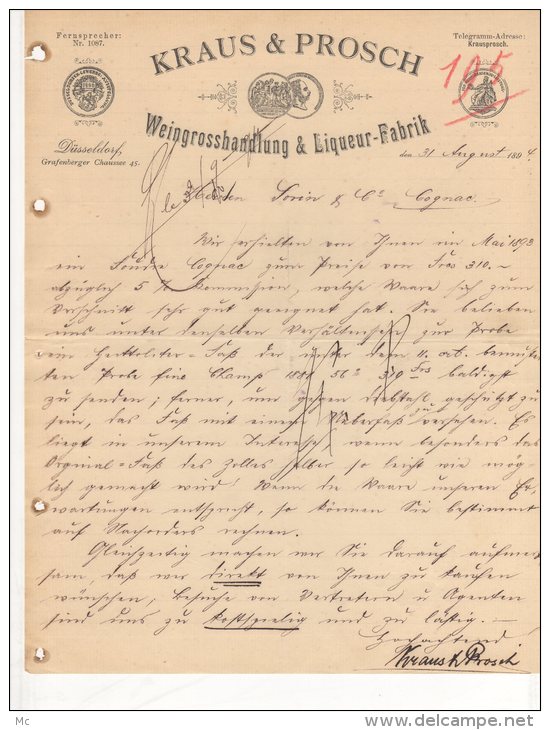 Fernsprecher:
Nr. 1087.
Telegramm-Adresse:
Krausprosch.
KRAUS & PROSCH
105
Weingrosshandlung & Liqueur-Fabrik
Düsseldorf,
Grafenberger Chaussee 45.
den 31 August 1894.
Herren Sorin & Co Cognac.
Wir erhielten von Ihnen im Mai 1893
ein Cognac zum Preise von Frcs 310.–
abzüglich 5 % Kommission, welche Waare sich zum
Verschnitt sehr gut geeignet hat. Sie belieben
uns unter denselben Verhältnissen zur Probe
ein Hectoliter-Faß der unter dem 11. bemuster-
ten Probe fine Champ 56° Frcs baldigst
zu senden; ferner, um gegen Diebstahl geschützt zu
sein, das Faß mit einem Ueberfaß zu versehen. Es
liegt in unserem Interesse wenn besonders das
Orginal-Faß des Zolles halber so leicht wie mög-
lich gemacht wird! Wenn die Waare unseren Er-
wartungen entspricht, so können Sie bestimmt
auf Nachorders rechnen.
Gleichzeitig machen wir Sie darauf aufmerk-
sam, daß wir direkt von Ihnen zu kaufen
wünschen; Besuche von Vertretern u Agenten
sind uns zu kostspielig und zu lästig. –
Hochachtend
Kraus & Prosch
Mc
www.delcampe.net